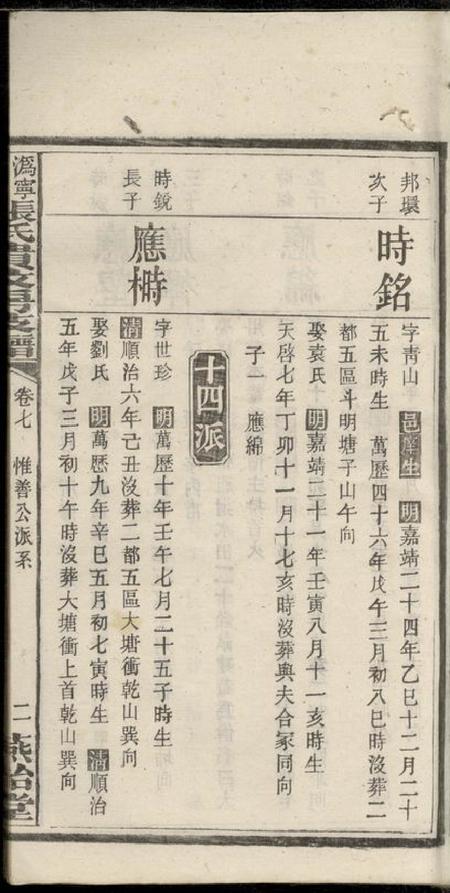 邦環
次子
時銘
字靑山 邑庠生 明嘉靖二十四年乙巳十二月二十
五未時生 萬歷四十六年戊午三月初八巳時沒葬二
都五區斗明塘子山午向
娶袁氏 明嘉靖二十一年壬寅八月十一亥時生
天啓七年丁卯十一月十七亥時沒葬與夫合冢同向
子一 應綿
十四派
時銳
長子
應榯
字世珍 明萬歷十年壬午七月二十五子時生
清順治六年己丑沒葬二都五區大塘衝乾山巽向
娶劉氏 明萬歷九年辛巳五月初七寅時生 清順治
五年戊子三月初十午時沒葬大塘衝上首乾山巽向
潙寧張氏
卷七 惟善公派系
二
燕詒堂